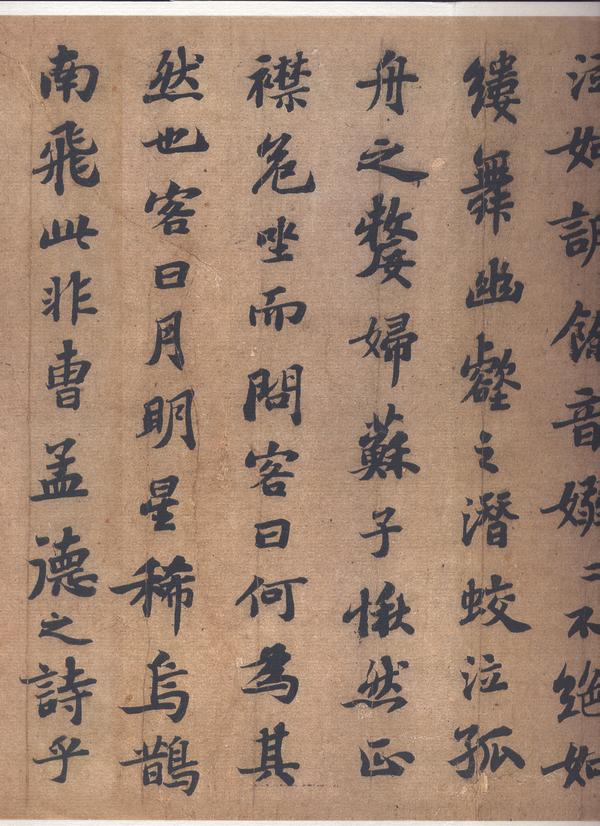 泣如訴餘音嫋〻不絕如
縷舞幽壑之潛蛟泣孤
舟之嫠婦蘇子愀然正
襟危坐而問客曰何為其
然也客曰月明星稀烏鵲
南飛此非曹孟德之詩乎